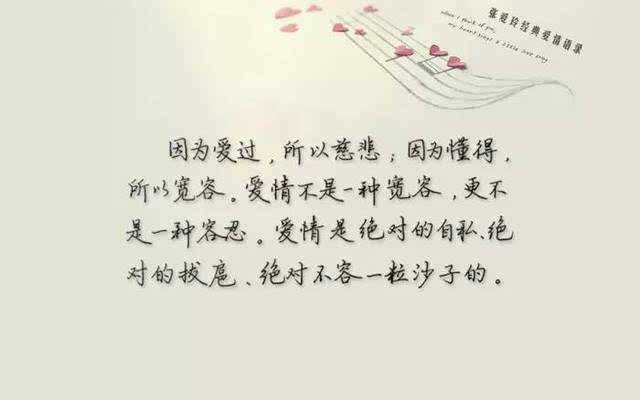 张爱玲经典爱情语录
when I think of you,
my heart sings a little love song
因为爱过，所以慈悲；因为懂得，
所以宽容。爱情不是一种宽容，更不
是一种容忍。爱情是绝对的自私、绝
对的拔扈、绝对不容一粒沙子的。